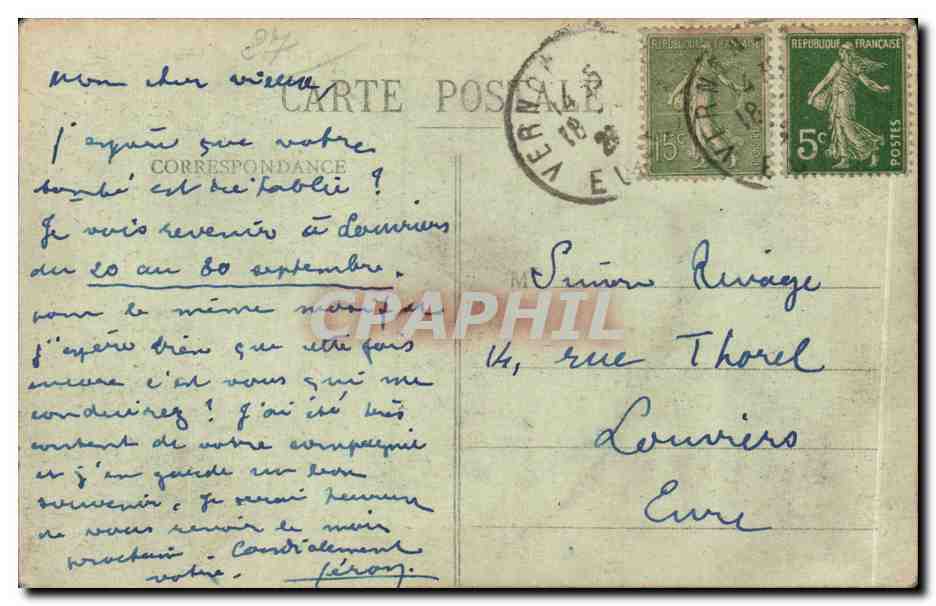 87
Mon cher vieux,
CARTE POSTALE
J'espère que votre
CORRESPONDANCE
santé est rétablie ?
Je vais revenir à Louviers
du 20 au 30 septembre.
pour le même motif et
j'espère bien que cette fois
encore c'est vous qui me
conduirez ? J'ai été très
content de votre compagnie
et j'en garde un bon
souvenir. Je serai heureux
de vous revoir le mois
prochain. Cordialement
votre.
VERN
14 5
18
EU
REPUBLIQUE FRANÇAISE
15c
VERN
18
E
REPUBLIQUE FRANÇAISE
5c
POSTES
M
Rivage
14, rue Thorel
Louviers
Eure
CPAPHIL